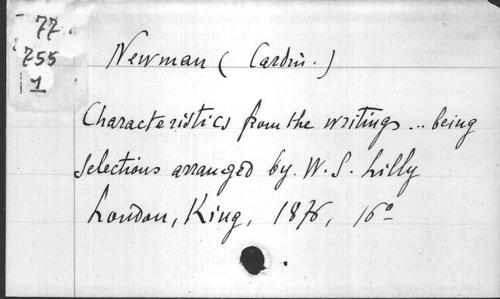 77
755
1
Newman (Cardin.)
Characteristics from the writings... being
selections arranged by W. S. Lilly
London, King, 1876, 16º